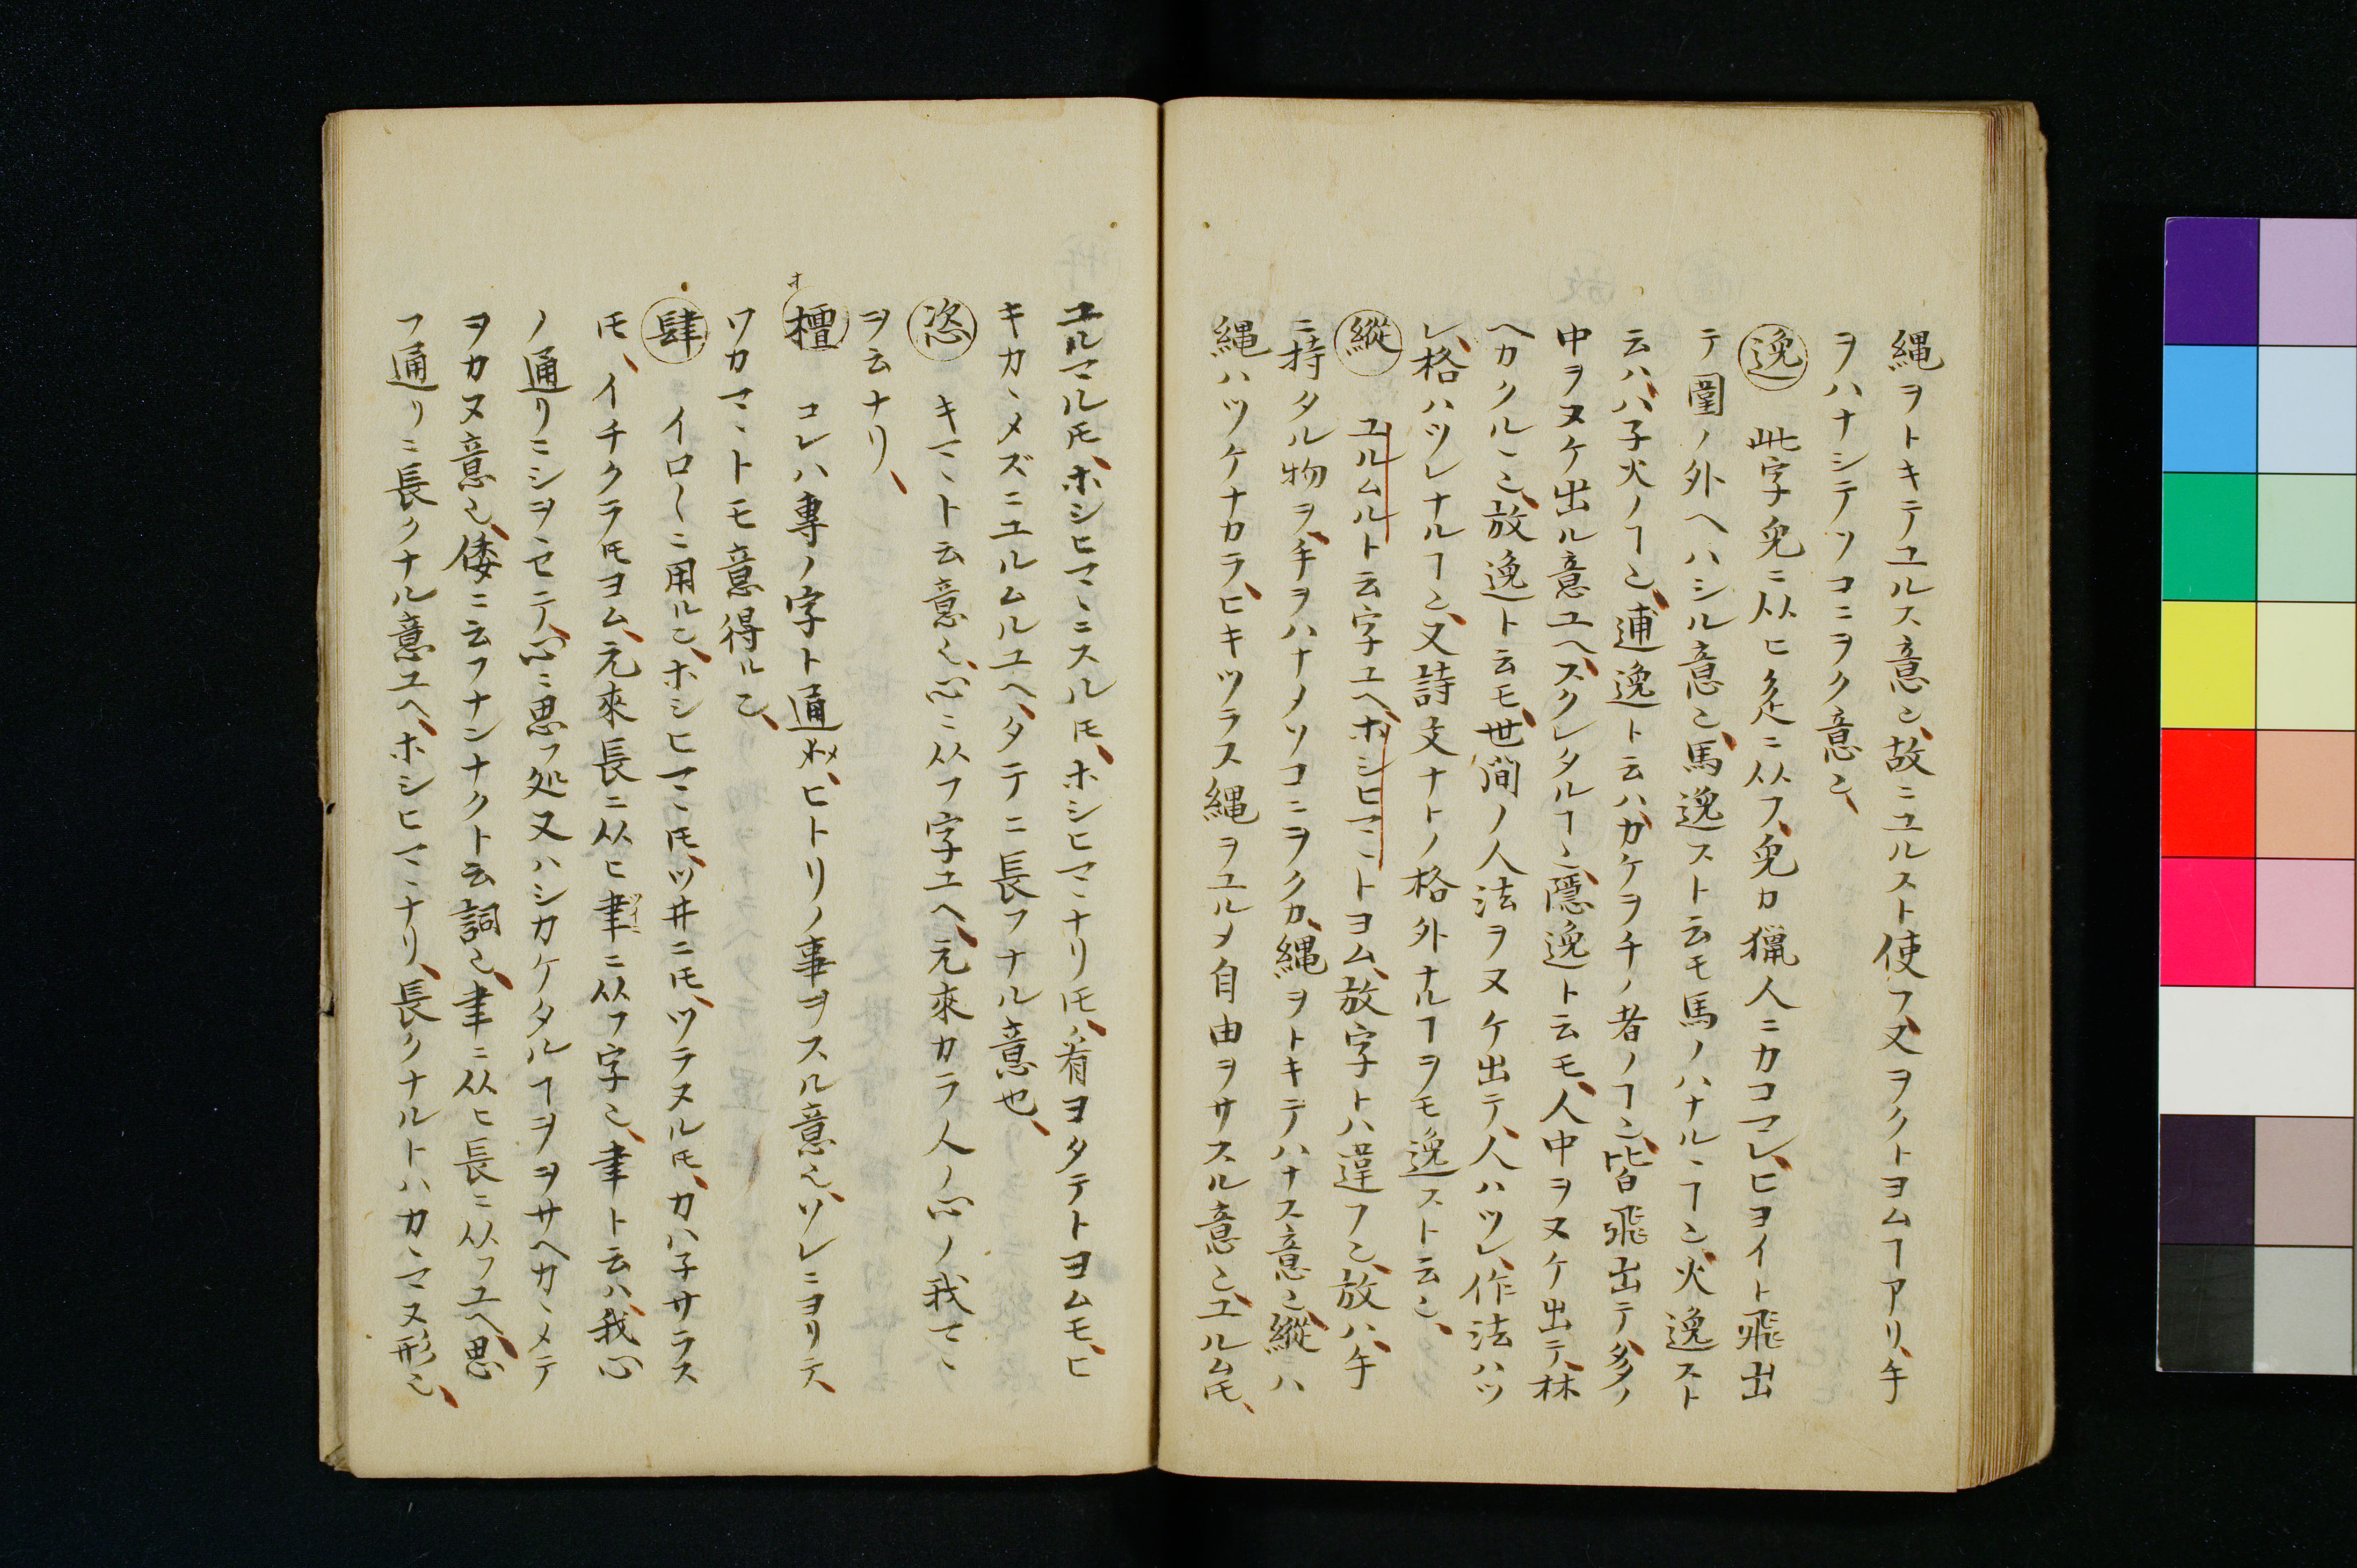 縄ヲトキテユルス意也、故ニユルスト使フ、又ヲクトヨムヿアリ、手
ヲハナシテソコニヲク意也、
逸 此字兔ニ从ヒ辵ニ从フ、兔カ猟人ニカコマレ、ヒヨイト飛出
テ圍ノ外ヘハシル意也、馬逸スト云モ馬ノハナルヽヿ也、火逸スト
云ハ、ハ子火ノヿ也、逋逸ト云ハ、カケヲチノ者ノヿ也、皆飛出テ多ノ
中ヲヌケ出ル意ユヘ、スクレタルヿ也、隱逸ト云モ、人中ヲヌケ出テ、林
ヘカクルヽ也、放逸ト云モ、世間ノ人法ヲヌケ出テ、人ハツレ、作法ハツ
レ、格ハツレナルヿ也、又詩文ナトノ格外ナルヿヲモ逸スト云也、
縱 ユルムルト云字ユヘ、ホシヒマヽトヨム、放字トハ違フ也、放ハ、手
ニ持タル物ヲ、手ヲハナソコニヲクカ、縄ヲトキテハナス意也、縱ハ
縄ハツケナカラ、ヒキツラス縄ヲユルメ自由ヲサスル意也、ユルムモ、
ユルマルモ、ホシヒマヽニスルモ、ホシヒマヽナリモ、肴ヨタテトヨムモ、ヒ
キカヽメズニユルムルユヘ、タテニ長フナル意也、
恣 キマヽト云意也、心ニ从フ字ユヘ、元來カラ人ノ心ノ我マヽ
ヲ云ナリ、
オ
擅 コレハ專ノ字ト通ス、ヒトリノ事ヲスル意也、ソレニヨリテ、
ワカマヽトモ意得ル也、
肆 イロ〱ニ用ル也、ホシヒマヽ圧、ツ井ニ圧、ツラヌル圧、カハ子サラス
圧、イチクラ圧ヨム、元來長ニ从ヒ聿ニ从フ字也、聿ト云ハ、我心
ノ通リニシヲセテ、心ニ思フ処又ハシカケタルヿヲヲサヘカヽメテ
ヲカヌ意也、倭ニ云フナンナクト云詞也、聿ニ从ヒ長ニ从フユヘ、思
フ通リニ長クナル意ユヘ、ホシヒマヽナリ、長クナルトハカヽマヌ形也、